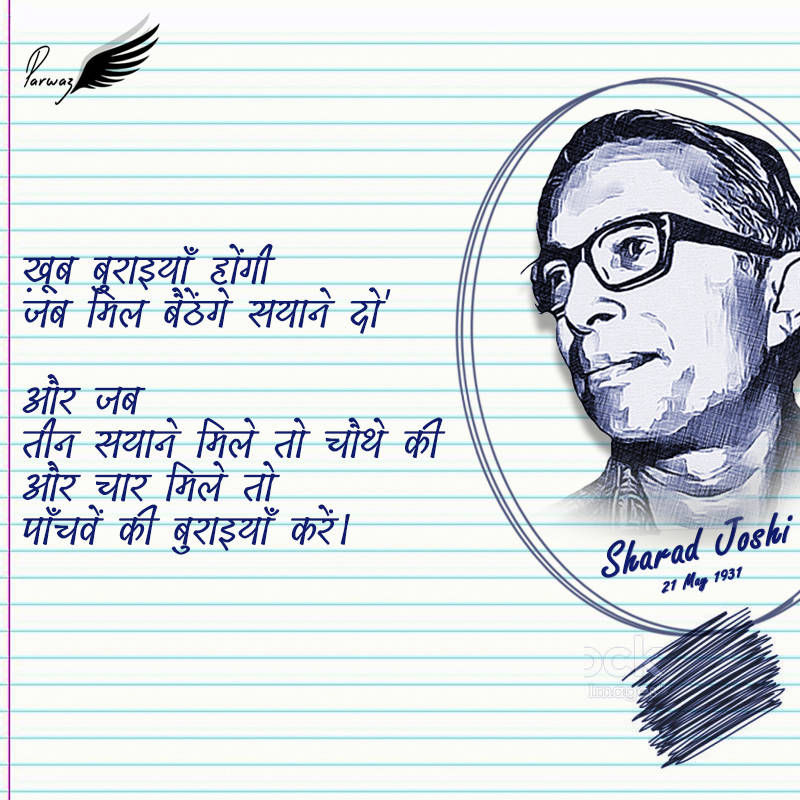 Parwaz
खूब बुराइयाँ होंगी
जब मिल बैठेंगे सयाने दो'
और जब
तीन सयाने मिले तो चौथे की
और चार मिले तो
पाँचवें की बुराइयाँ करें।
Sharad Joshi
21 May 1931
ock
Images